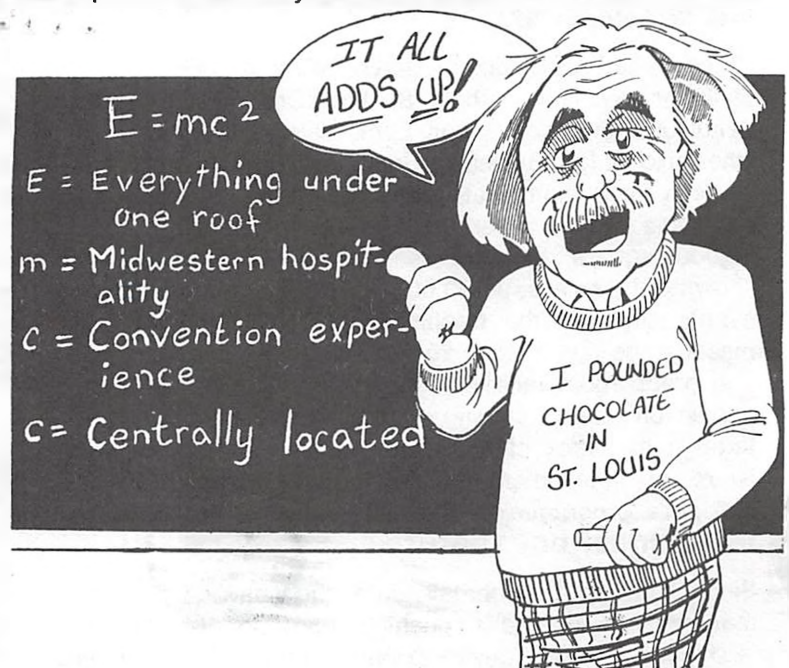 IT ALL
ADDS UP!
E = mc²
E = Everything under
one roof
m = Midwestern hospit-
ality
c = Convention exper-
ience
c = Centrally located
I POUNDED
CHOCOLATE
IN
ST. LOUIS